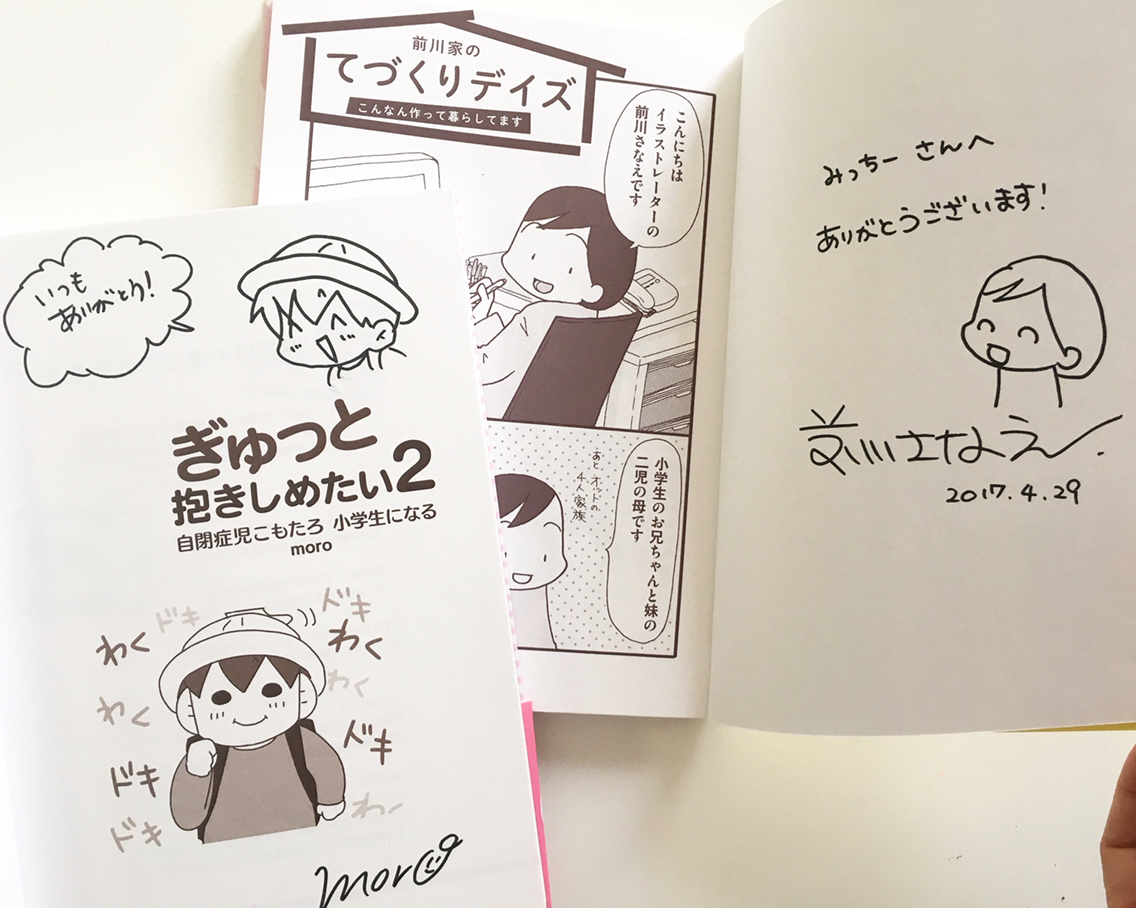 前川家の
てづくりデイズ
こんなん作って暮らしてます
こんにちは
イラストレーターの
前川さなえです
小学生のお兄ちゃんと妹の
二児の母です
あと オットの
4人家族
みっちー さんへ
ありがとうございます!
前川さなえ
2017.4.29
いつも
ありがとう!
ぎゅっと
抱きしめたい2
自閉症児こもたろ 小学生になる
moro
ドキ
ドキ
わく
わく
わく
わく
ドキ
ドキ
わく
ドキ
moro